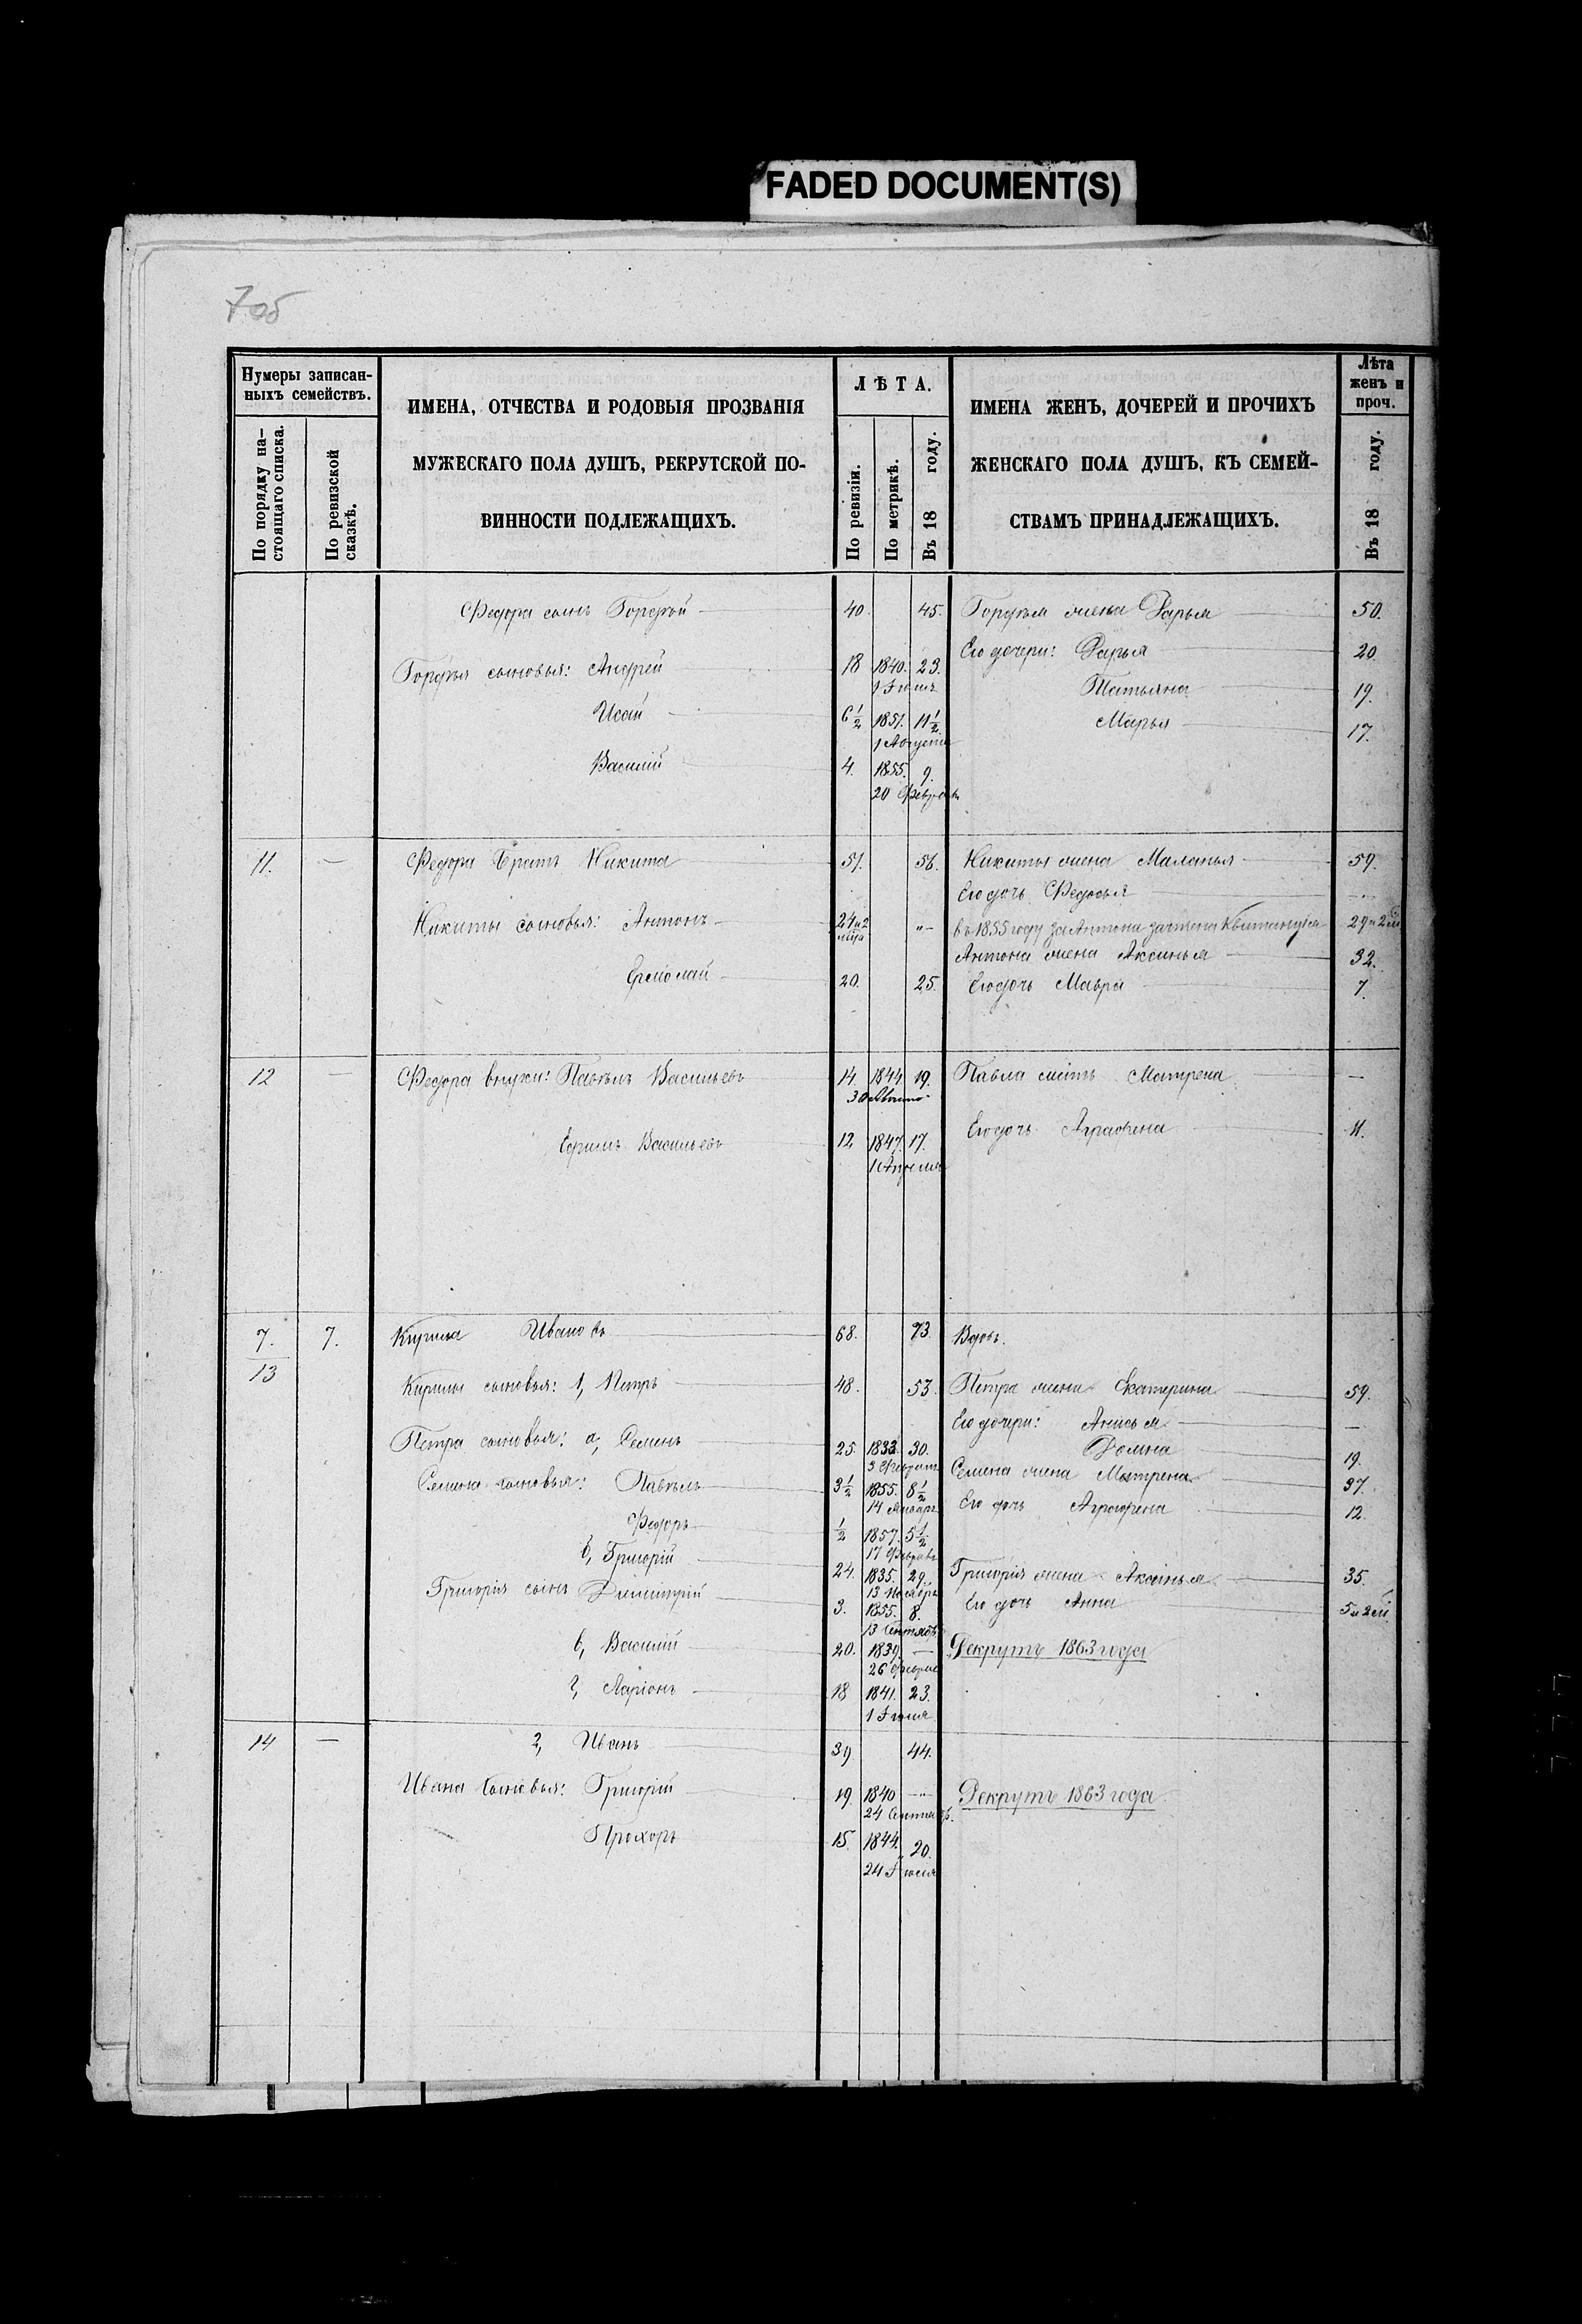 FADED DOCUMENT(S)
7об
Нумеры записан-
ныхъ семействъ.
По порядку на-
стоящаго списка.
По ревизской
сказкѣ.
ИМЕНА, ОТЧЕСТВА И РОДОВЫЯ ПРОЗВАНІЯ
МУЖЕСКАГО ПОЛА ДУШЪ, РЕКРУТСКОЙ ПО-
ВИННОСТИ ПОДЛЕЖАЩИХЪ.
ЛѢТА.
По ревизіи.
По метрикѣ.
Въ 18 году.
ИМЕНА ЖЕНЪ, ДОЧЕРЕЙ И ПРОЧИХЪ
ЖЕНСКАГО ПОЛА ДУШЪ, КЪ СЕМЕЙ-
СТВАМЪ ПРИНАДЛЕЖАЩИХЪ.
Лѣта
женъ и
проч.
Въ 18 году.
Федора сынъ Гордѣй 40. 45. Гордѣя жена Дарья 50.
Его дочери: Дарья 20
Гордѣя сыновья: Андрей 18 1840. 23.
Татьяна 19.
Исай 6 1/2 1851. 11 1/2
1 Августа
Марья 17.
Василій 4. 1855. 9.
20 Февраля
11. — Федора братъ Никита 51. 56. Никиты жена Маланья 59.
Его дочь Федосья
Никиты сыновья: Антонъ 24 и 2 "– въ 1855 году за Антона зачтена Квитанція 29 и 2
Антона жена Аксинья 32.
Ермолай 20. 25. Его дочь Мавра 7.
12 — Федора внуки: Павелъ Васильевъ 14. 1844 19. Павла мать Матрена —
Ефимъ Васильевъ 12 1847. 17. Его дочь Аграфена 11.
1 Апреля
7. 7. Кирила Ивановъ 68. 73. Вдовъ.
13
Кирилы сыновья: 1, Петръ 48. 53. Петра жена Екатерина 59.
Его дочери: Анисья —
Петра сыновья: а, Семенъ 25. 1833. 30. Домна 19.
Семена жена Матрена 37.
Семена сыновья: Павелъ 3 1/2 1855. 8 1/2
14 Январ
Его дочь Аграфена 12.
Федоръ 1/2 1857. 5 1/2
17 Феврал
б, Григорій 24. 1835. 29. Григорія жена Аксинья 35.
13 Ноябр
Григорія сынъ Димитрій 3. 1855. 8. Его дочь Анна 5 и 2
13 Сентяб
в, Василій 20. 1839. — Рекрутъ 1863 года
26 Феврал
г, Ларіонъ 18 1841. 23.
1 Іюля
14 — 2, Иванъ 39. 44.
Ивана сыновья: Григорій 19. 1840 –"– Рекрутъ 1863 года
24 Сентяб.
Прохоръ 15. 1844. 20.
24 Іюля